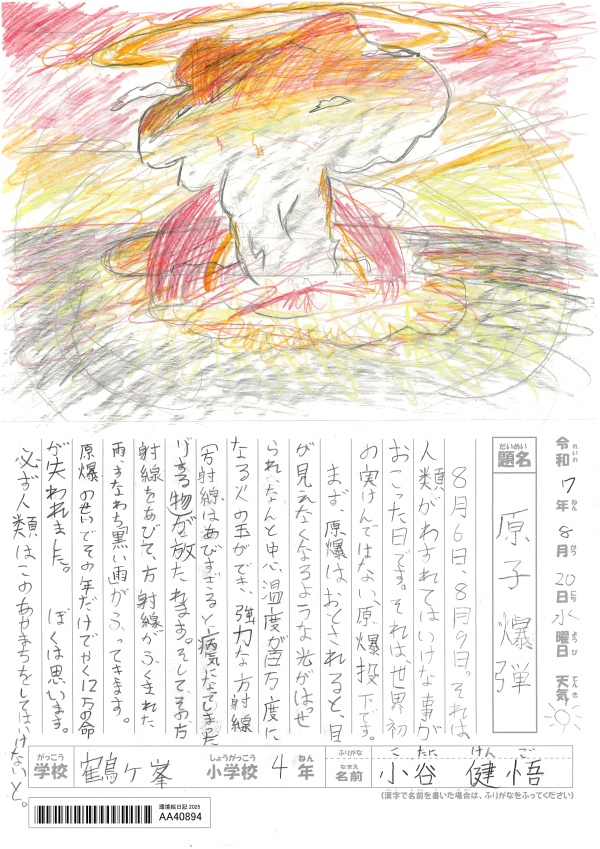 令和7年8月20日水曜日 天気
れいわ ねん がつ にち ようび てんき
だいめい
題名 原子爆弾
8月6日、8月9日。それは、
人類がわすれてはいけな事が
おこった日です。それは、世界初
の実けんではない原爆投下です。
まず、原爆はおとされると、目
が見えなくなるような光がはっせ
られ、なんと中心温度が百万度に
なる火の玉ができ、強力な方射線
(方射線はあびすぎると病気になってしまった
りする物)が放たれます。そして、その方
射線をあびて、方射線がふくまれた
雨、すなわち「黒い雨」がふってきます。
原爆のせいでその年だけでやく12万の命
が失われました。 ぼくは思います。
必ず人類はこのあやまちをしてはいけないと。
がっこう しょうがっこう ねん ふりがな こたに けんご
学校 鶴ケ峯 小学校 4年 なまえ 名前 小谷 健悟
(漢字で名前を書いた場合は、ふりがなをふってください)
環境絵日記 2025
AA40894